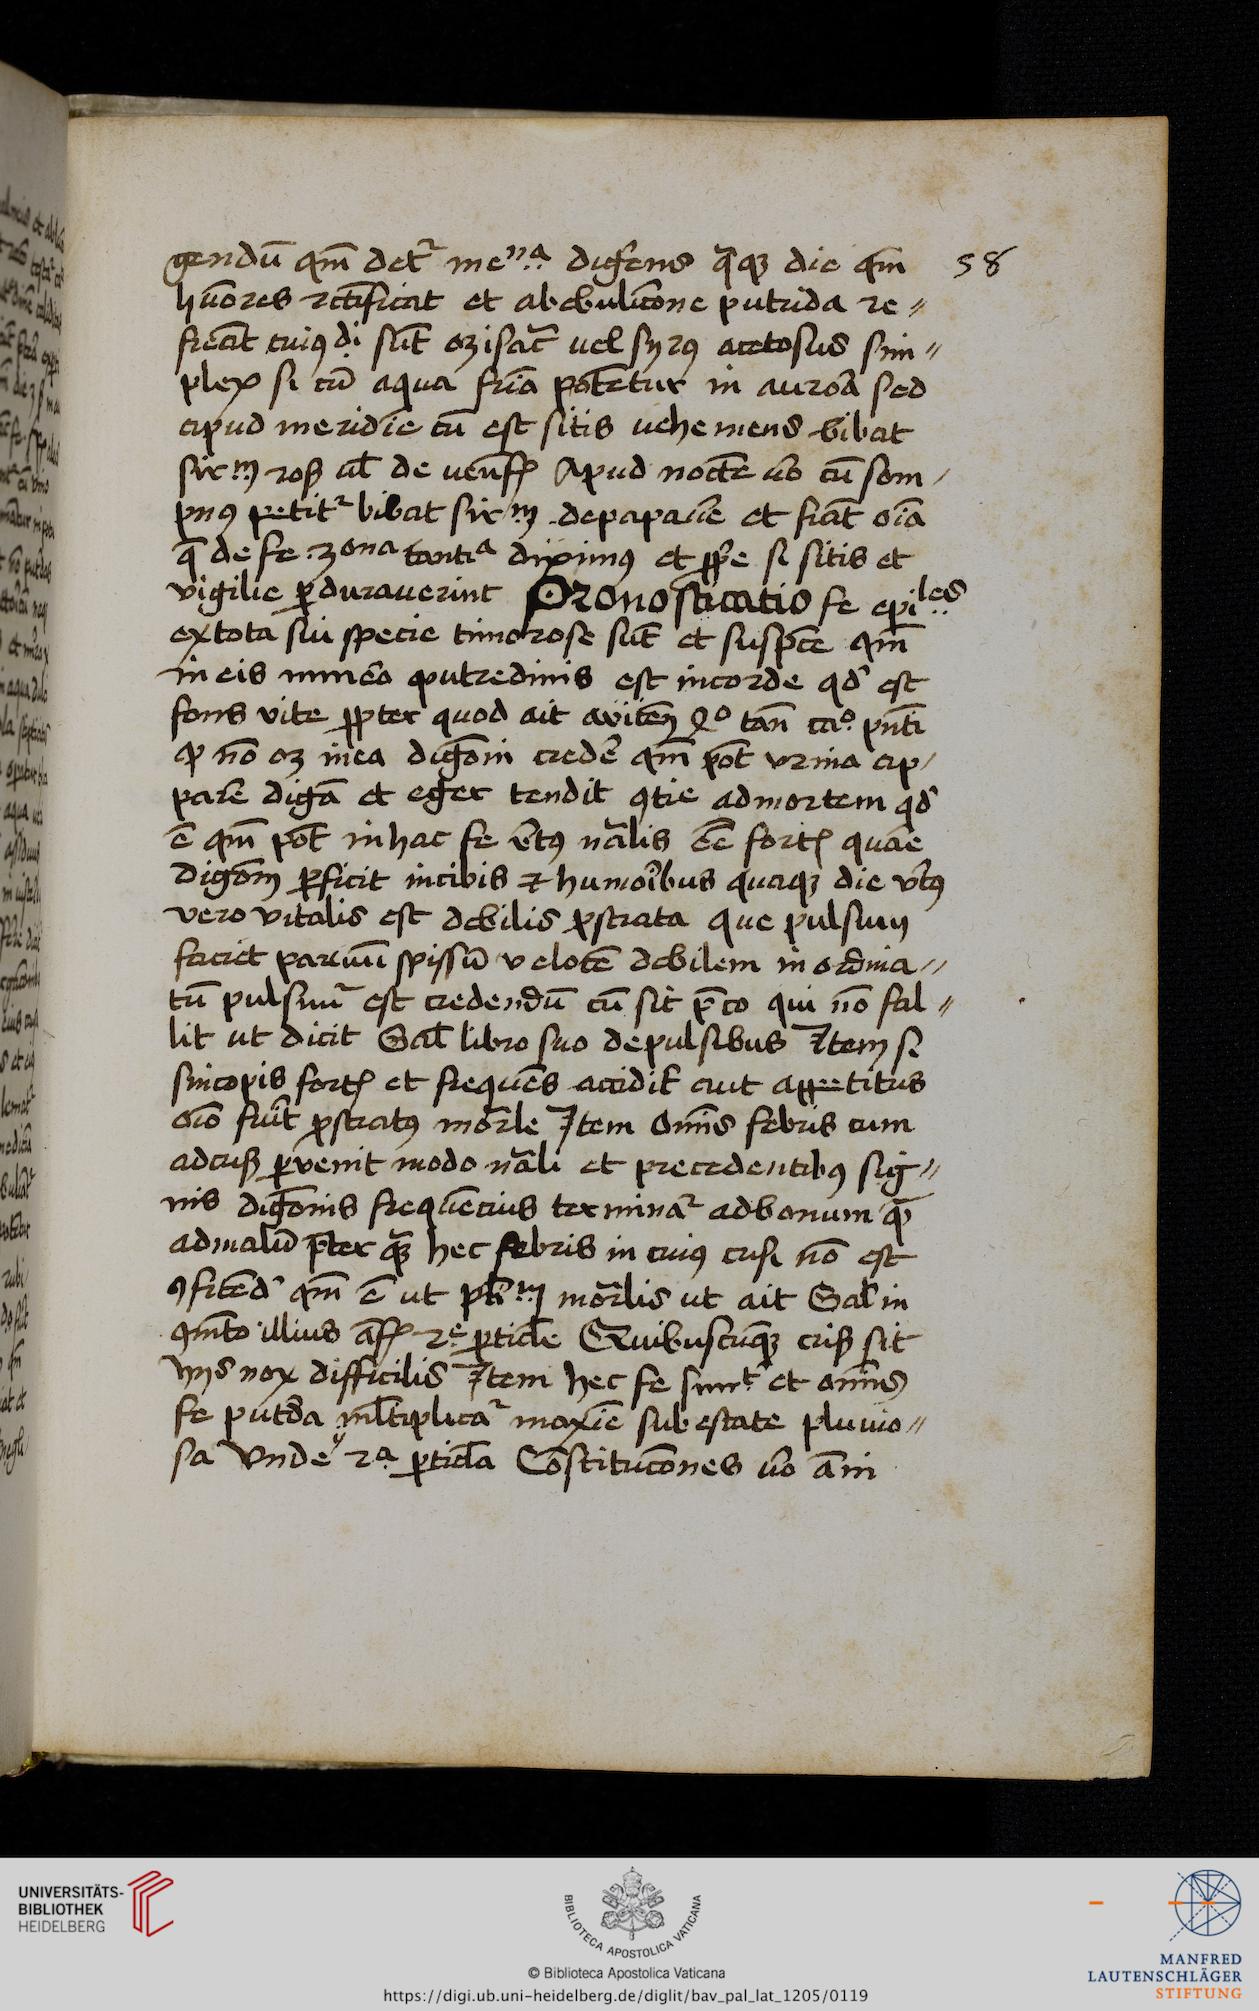 gendū qm̄ detʳ me.ⁿᵃ digēns q̄qȝ die qm̄ 58
hūores rctificāt et ab ebulicōne putrida re〃
ficiāt cuiꝰdi sūt oȝisac̄ vel syrꝰ acetosus sim〃
plex si cū aqua friā potetur in aurorā sed
apud meridiē cū est sitis vehemens bibat
sirᵐ ros vl̄ de
 Apud noctē v̄o cū som
pnꝰ petitʳ bibat sirᵐ de papaūe et fiāt oīa
q̄ de fe .3ona tantiᵃ diximꝰ et sitis et
vigilie ꝑduraverint Pronosticatio fe epiˡᵉˢ
ex tota sui specie timorose sūt et suspcē qm̄
in eis putredinis est in corde qd̄ est
fons vite ꝓpter quod ait p̄nti
ꝙ nō oȝ in ea digōni crede qm̄ pōt vrina ap
parē digā et eger tendit ad mortem qd̄
ē qm̄ pōt in hac fe v̄tꝰ nālis eē fort
digōm ꝑficit in cibis et humoībus quaqȝ die v̄tꝰ
vero vitalis est debilis ꝓstrata que pulsum
faciet parvuū spissū velocē debilem inordina〃
tū pulsui est credendū cū sit p̄co qui nō fal〃
lit ut dicit Gal̄ libro suo de pulsibus Item si
sincopis fort et frequēs accidit aut appetitus
oīo fuit ꝓstratꝰ mōrle Item om̄is febris cum
ad cris ꝑvenit modo nāli et precedentibꝰ sig〃
nis digōnis frequēcius terminaʳ ad bonum qm̄
ad malū p̄ter hec febris in cuiꝰ crisi nō est
ꝯfitēd qm̄ ē ut plīᵐ mōrlis ut ait Gal̄ in
qm̄to illius aff 2ᵉ ꝑticlē Quibuscūqȝ cris sit
hijs nox difficilis Item hec fe et om̄is
fe putda ml̄tiplicaʳ maxīe sub estate pluvio〃
sa Vnde 2ᵃ ꝑticla Cōstitucōnes v̄o
UNIVERSITÄTS-
BIBLIOTHEK
HEIDELBERG
BIBLIOTECA APOSTOLICA VATICANA
© Biblioteca Apostolica Vaticana
https://digi.ub.uni-heidelberg.de/diglit/bav_pal_lat_1205/0119
MANFRED
LAUTENSCHLÄGER
STIFTUNG